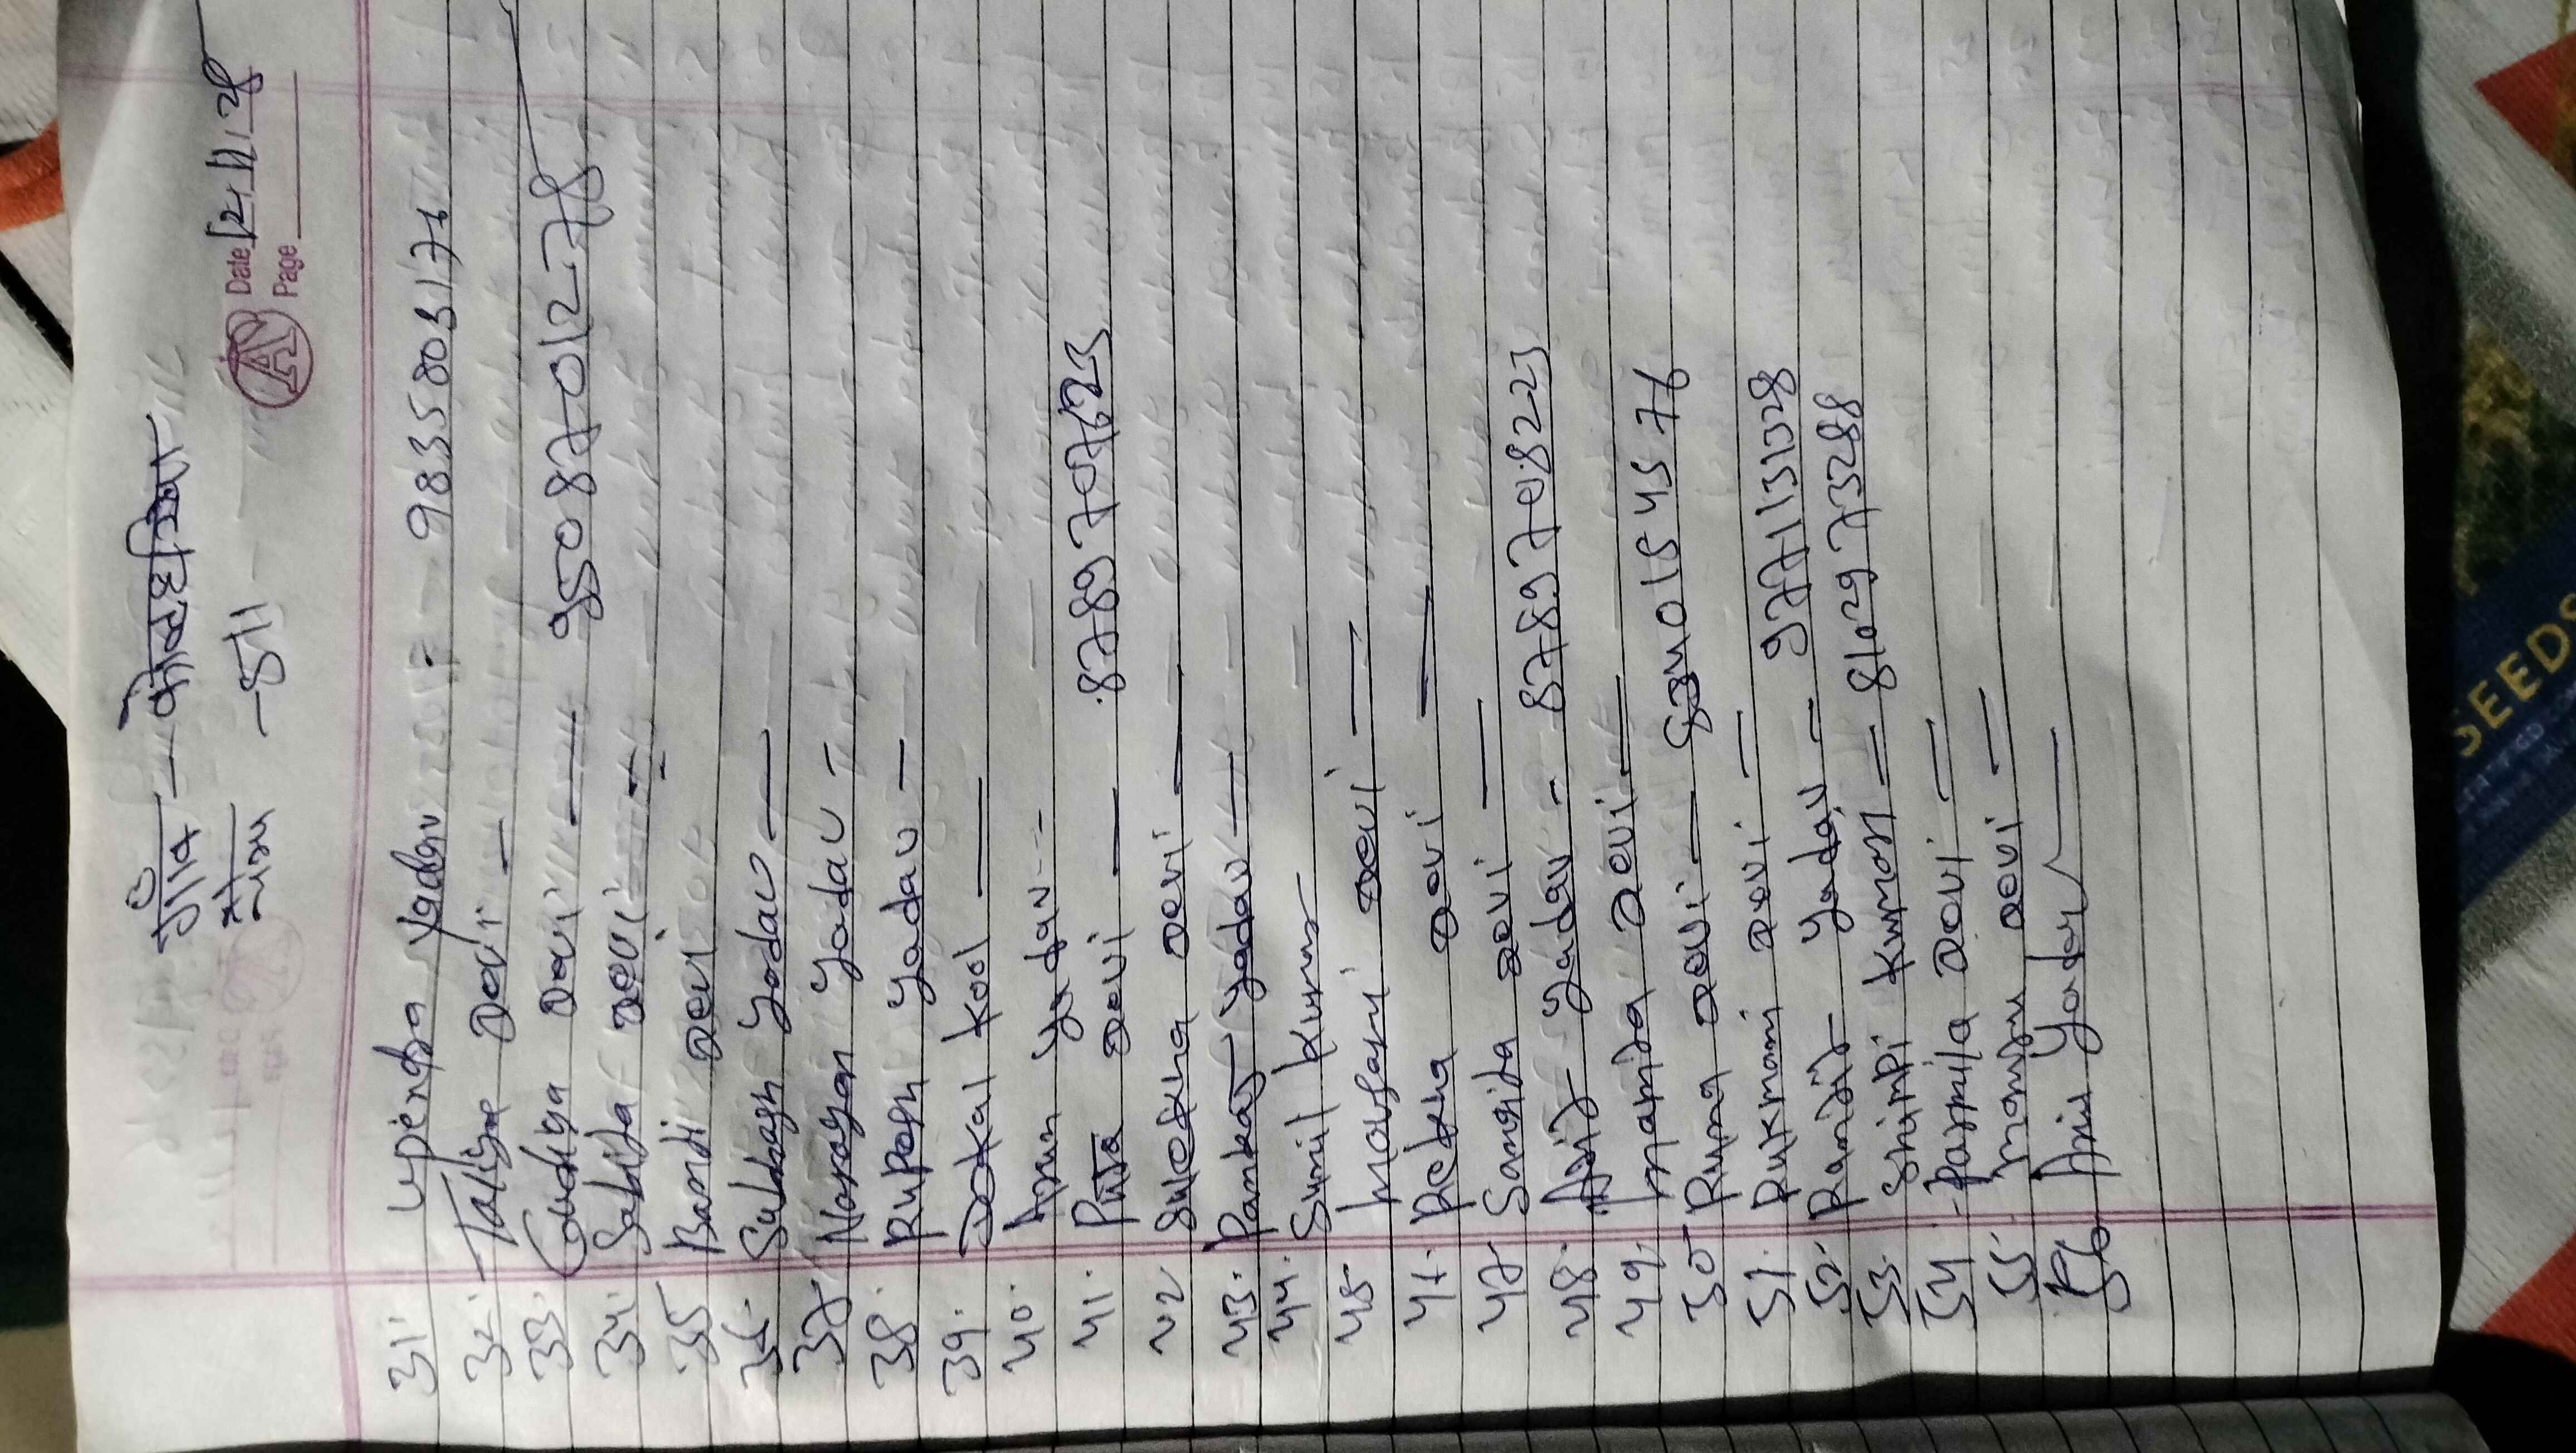 गाँव — कोल्हरिया
Date 12/11/25
Page
31. Upendra Yadav - 9835003176
32. Taliya Devi —
33. Gudiya Devi — 9508701278
34. Sabita Devi —
35 Bandi Devi
36. Subhash Yadav —
37 Narayan Yadav —
38. Rupesh Yadav —
39. Kool —
40. Arun Yadav --
41. Puta Devi —
42 Sulekha Devi —
43. Pankaj Yadav —
44. Sunil Kumar
45 Devi —
47. Rekha Devi —
47 Sangita Devi —
48. Ajit Yadav - 8789708225
49 Mamita Devi —
50 Runa Devi —
51. Rukmani Devi —
52. Ranjit Yadav -
53. Shimpi Kumari = 8102973288
54. Parmila Devi —
55. Manju Devi —
56 Yadav —
SEEDS